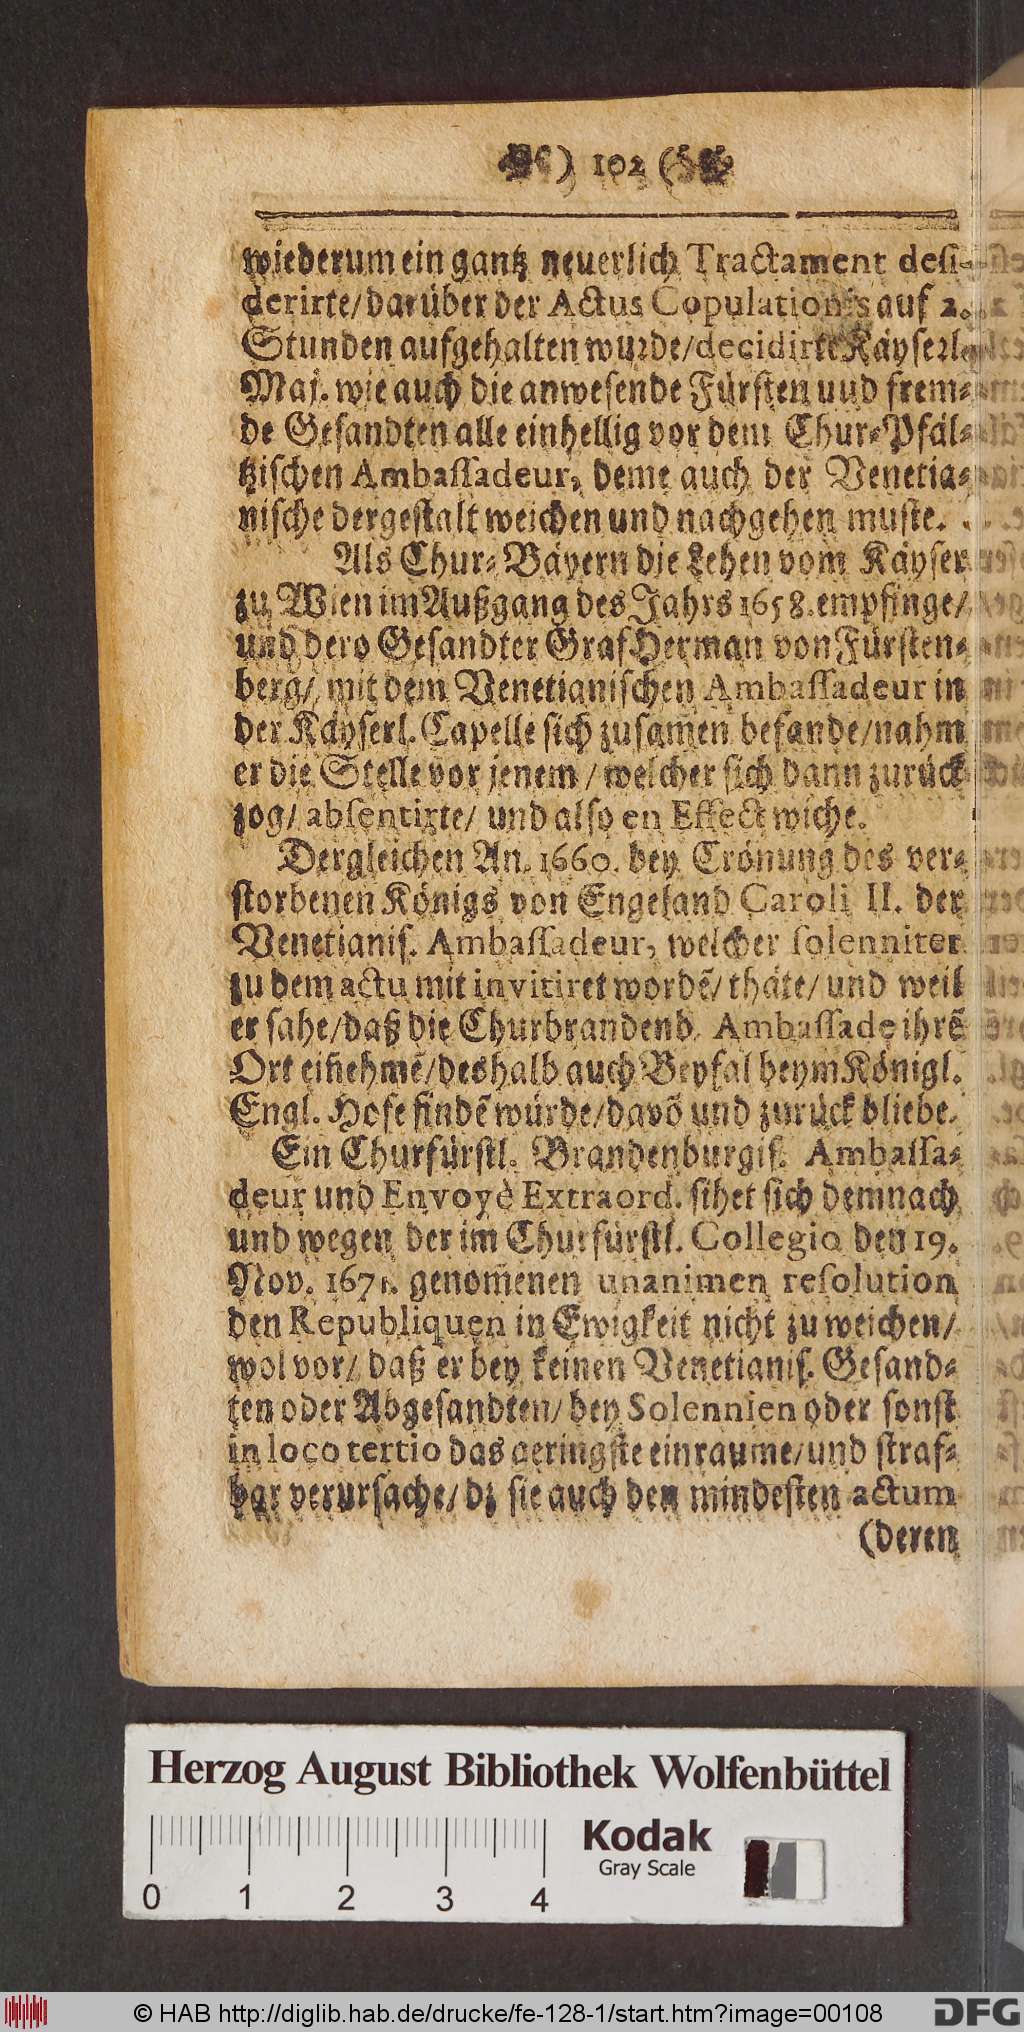 ) 102 (
wiederum ein gantz neuerlich Tractament desi-
derirte/ darüber der Actus Copulationis auf 2.
Stunden aufgehalten wurde/ decidirte Käyserl.
Maj. wie auch die anwesende Fürsten uud frem-
de Gesandten alle einhellig vor dem Chur-Pfäl-
tzischen Ambassadeur, deme auch der Venetia-
nische dergestalt weichen und nachgehen muste.
Als Chur-Bäyern die Lehen vom Käyser
zu Wien im Außgang des Jahrs 1658. empfinge/
und dero Gesandter Graf Herman von Fürsten-
berg/ mit dem Venetianischen Ambassadeur in
der Käyserl. Capelle sich zusam̃en befande/ nahm
er die Stelle vor jenem/ welcher sich dann zurück
zog/ absentirte/ und also en Effect wiche.
Dergleichen An. 1660. bey Crönung des ver-
storbenen Königs von Engeland Caroli II. der
Venetianis. Ambassadeur, welcher solenniter
zu dem actu mit invitiret wordẽ/ thäte/ und weil
er sahe/ daß die Churbrandenb. Ambassade ihrẽ
Ort eiñehmẽ/ deshalb auch Beyfal beym Königl.
Engl. Hofe findẽ würde/ davõ und zurück bliebe.
Ein Churfürstl. Brandenburgis. Ambassa-
deur und Envoyè Extraord. sihet sich demnach
und wegen der im Churfürstl. Collegio den 19.
Nov. 1671. genom̃enen unanimen resolution
den Republiquen in Ewigkeit nicht zu weichen/
wol vor/ daß er bey keinen Venetianis. Gesand-
ten oder Abgesandten/ bey Solennien oder sonst
in loco tertio das geringste einraume/ und straf-
bar verursache/ dz sie auch den mindesten actum
(deren
Herzog August Bibliothek Wolfenbüttel
0 1 2 3 4
Kodak
Gray Scale
© HAB http://diglib.hab.de/drucke/fe-128-1/start.htm?image=00108
DFG